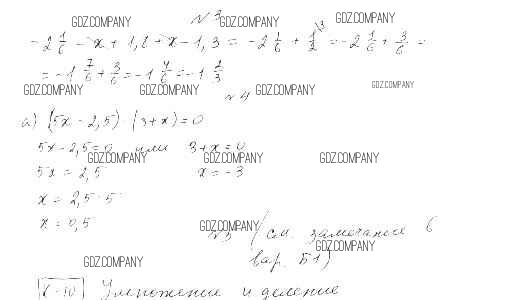 GDZ.COMPANY № 3 GDZ.COMPANY GDZ.COMPANY
-2 1/6 - x + 1,8 + x - 1,3 = -2 1/6 + 1/2 = -2 1/6 + 3/6 =
= -1 7/6 + 3/6 = -1 4/6 = -1 2/3
GDZ.COMPANY GDZ.COMPANY GDZ.COMPANY GDZ.COMPANY
№ 4
а) (5x - 2,5) · (3 + x) = 0
5x - 2,5 = 0 или 3 + x = 0
GDZ.COMPANY GDZ.COMPANY GDZ.COMPANY
5x = 2,5 x = -3
x = 2,5 : 5
x = 0,5
GDZ.COMPANY
№5 (см. замечание в
GDZ.COMPANY
вар. Б1)
GDZ.COMPANY
К-10 Умножение и деление